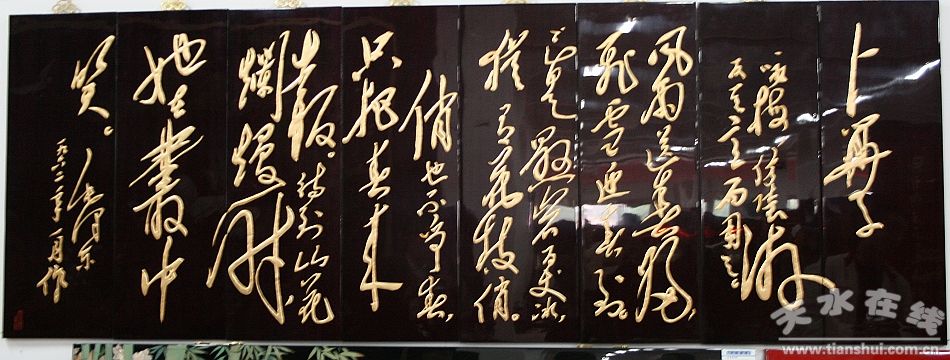 卜算子
咏梅 陸游
反其意而用之
风雨送春归
飞雪迎春到
已是懸崖百丈冰
犹有花枝俏
俏也不争春
只把春来
報。待到山花
爛熳時
她在叢中
笑。毛泽东
一九六二年一月作
天水在线
www.tianshui.com.cn